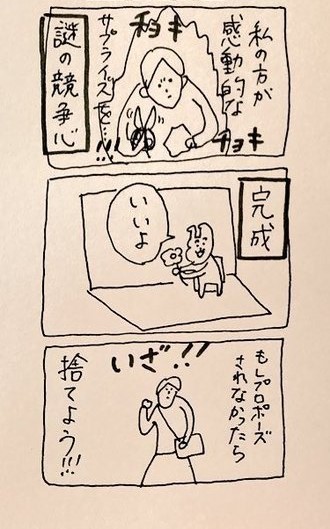 私の方が
感動的な
サプライズを…!!!
チョキ
チョキ
謎の競争心
完成
いいよ
もしプロポーズ
されなかったら
いざ!!
捨てよう!!!